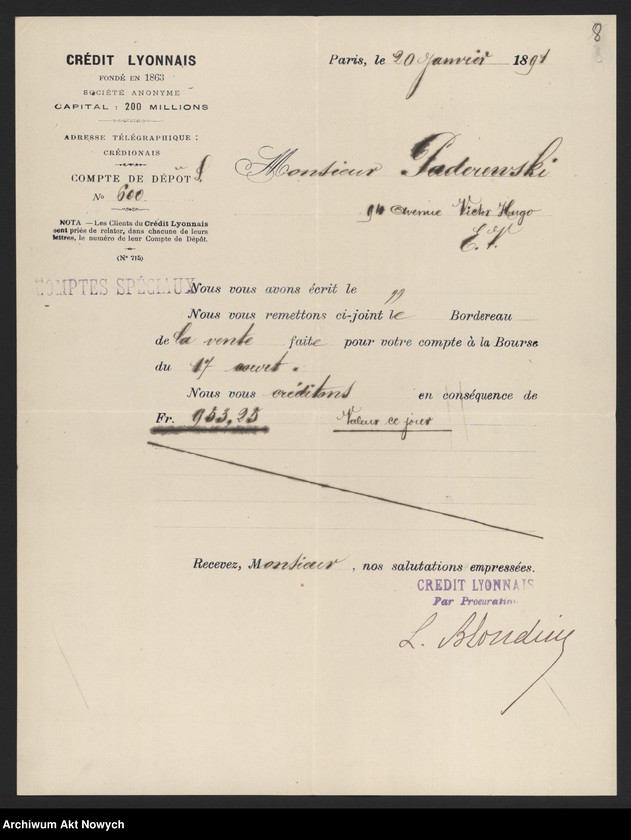 8
CRÉDIT LYONNAIS
FONDÉ EN 1863
SOCIÉTÉ ANONYME
CAPITAL : 200 MILLIONS
ADRESSE TÉLÉGRAPHIQUE :
CRÉDIONAIS
COMPTE DE DÉPOT
No 600
NOTA — Les Clients du Crédit Lyonnais
sont priés de relater, dans chacune de leurs
lettres, le numéro de leur Compte de Dépôt.
(No 715)
COMPTES SPÉCIAUX
Paris, le 20 Janvier 1891
Monsieur Paderewski
94 Avenue Victor Hugo
E. V.
Nous vous avons écrit le "
Nous vous remettons ci-joint le Bordereau
de la vente faite pour votre compte à la Bourse
du 17 court.
Nous vous créditons en conséquence de
Fr. 953,25 Valeur ce jour
Recevez, Monsieur, nos salutations empressées.
CREDIT LYONNAIS
Par Procuration
L. Blondin
Archiwum Akt Nowych